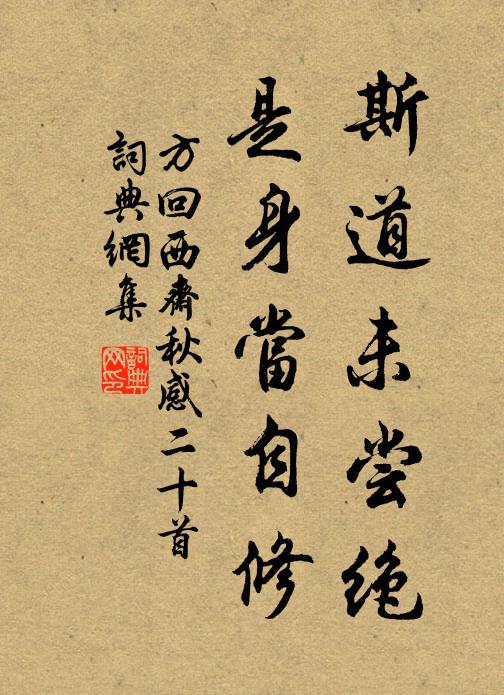 斯道未尝绝
是身當自修
方回西齋秋感二十首
詞典網集
詞典网印